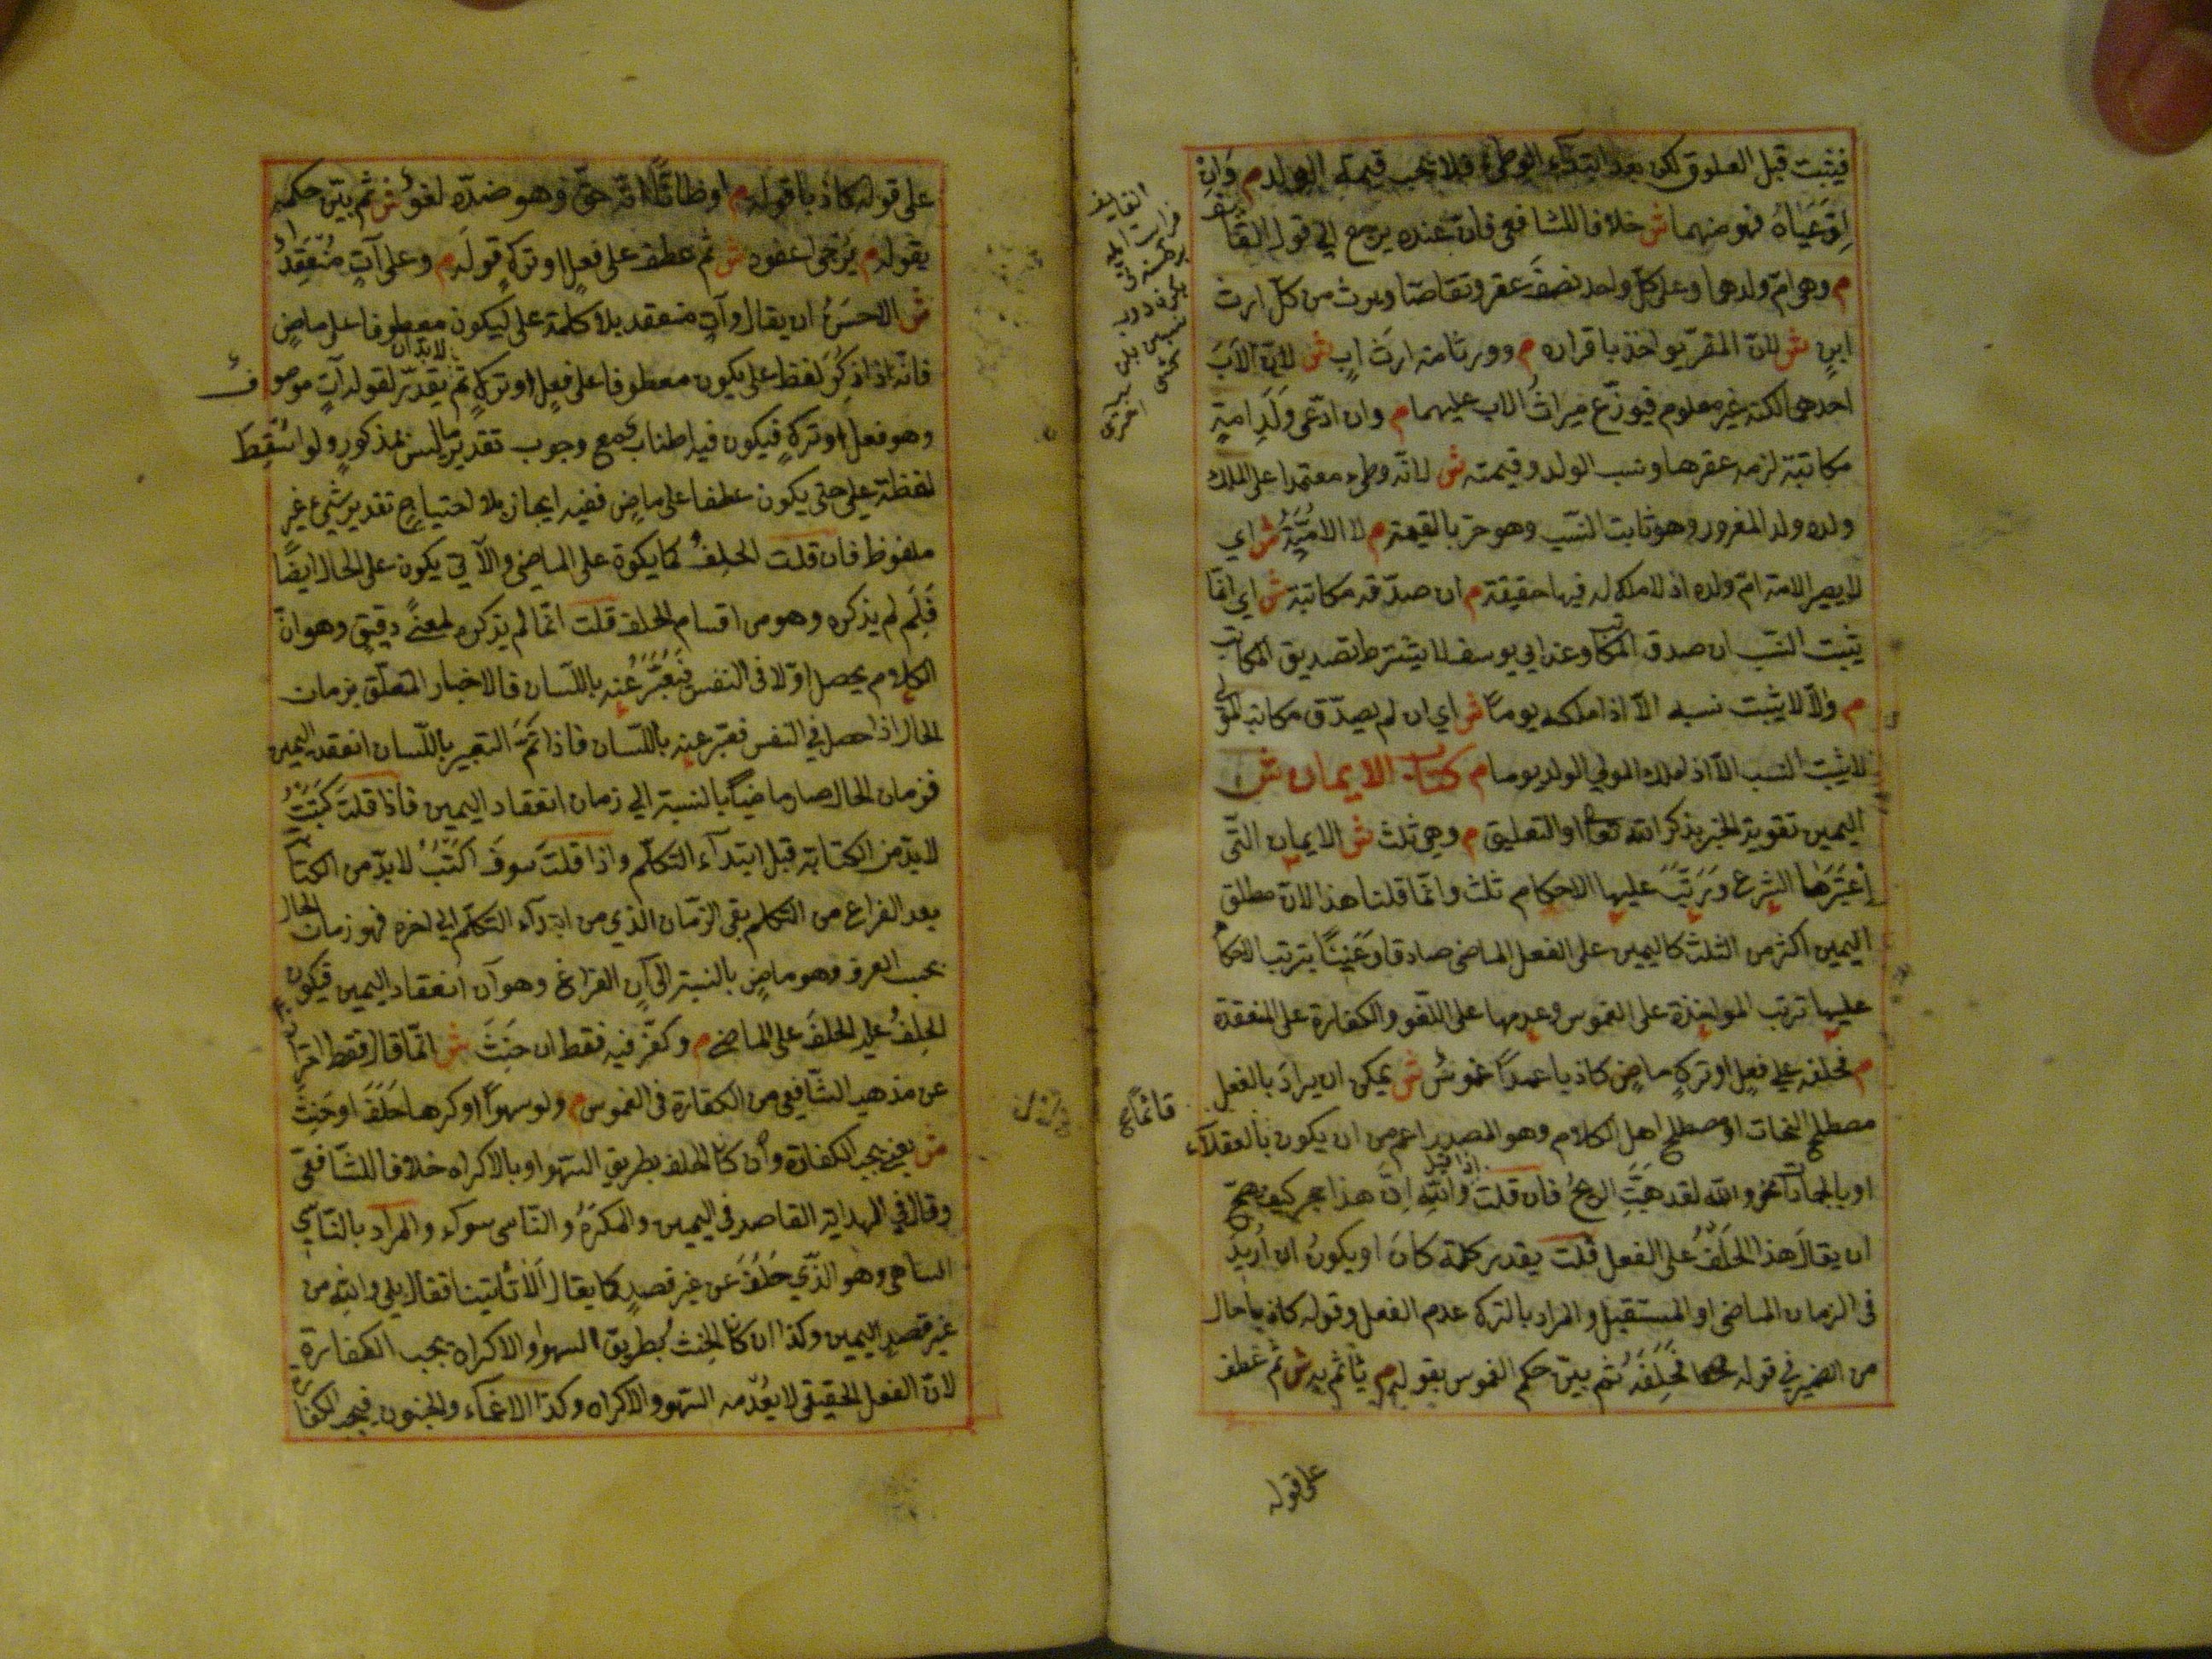 فيثبت قبل العلوق لكن بعد ابتداء الوطئ فلا تجب قيمة الولد م وان
ادعياه فهو منهما ش خلافا للشافعي فان عنده يرجع الي قول القائف
م وهي ام ولدهما وعلى كل واحد نصف عقر وتقاصا ويرث من كل ارث
ابن ش لان المقر يواخذ باقراره م وورثا منه ارث اب ش لان الاب
احدهما لكنه غير معلوم فيوزع ميراث الاب عليهما م وان ادعى ولد امة
مكاتبة لزمه عقرها ونسب الولد وقيمته ش لانه وطيء معتمدا على الملك
ولده ولد المغرور وهو ثابت النسب وهو حر بالقيمة م لا الامية ش اي
لا يصير الامة ام ولده اذ لا ملك له فيها حقيقة م ان صدقه مكاتبة ش اي انما
يثبت النسب ان صدق المكاتب وعند ابي يوسف لا يشترط تصديق المكاتب
م والا لا يثبت نسبه الا اذا ملكه يوما ش اي ان لم يصدق مكاتب المولى
لا يثبت النسب الا اذا ملك المولي الولد يوما م كتاب الايمان ش
اليمين تقوية الخبر بذكر الله تعالى او التعليق م وهي ثلث ش الايمان التي
اعتبرها الشرع ورتب عليها الاحكام ثلث وانما قلنا هذا لان مطلق
اليمين اكثر من الثلث كاليمين على الفعل الماضي صادقا وعنينا بترتب الاحكام
عليها ترتب المواخذة على الغموس وعدمها على اللغو والكفارة على المنعقدة
م فحلفه على فعل او ترك ماض كاذبا عمدا غموس ش يمكن ان يراد بالفعل
مصطلح النحات او مصطلح اهل الكلام وهو المصدر اعم من ان يكون قائما بالعقلاء
او بالجمادات نحو والله لقد هبت الريح فان قلت اذا قيل والله ان هذا حجر كيف يصح
ان يقال هذا الحلف على الفعل قلت يقدر كلمة كان او يكون ان اريد
في الزمان الماضي او المستقبل والمراد بالترك عدم الفعل وقوله كاذبا حال
من الضمير في قوله فحلفه ثم بين حكم الغموس بقوله م ياثم به ش ثم عطف
على قوله
على قوله كاذبا قوله م او ظانا انه حق وهو ضده لغو ش ثم بين حكمه
بقوله م يرجى عفوه ش ثم عطف على فعل او ترك قوله م وعلى آت منعقد
ش الاحسن ان يقال وآت منعقد بلا كلمة على ليكون معطوفا على ماض
فانه اذا ذكر لفظ على يكون معطوفا على فعل او ترك ثم لا بد ان يقدر لقوله آت موصوف
وهو فعل او ترك فيكون فيه اطناب مع وجوب تقدير ما ليس بمذكور ولو اسقط
لفظة على حتى يكون عطفا على ماض ففيه ايجاز بلا احتياج تقدير شيء غير
ملفوظ فان قلت الحلف كما يكون على الماضي والآتي يكون على الحال ايضا
فلم لم يذكره وهو من اقسام الحلف قلت انما لم يذكره لمعنى دقيق وهو ان
الكلام يحصل اولا في النفس فيعبر عنه باللسان فالاخبار المتعلق بزمان
الحال اذا حصل في النفس فعبر عنه باللسان فاذا تم التعبير باللسان انعقد اليمين
فزمان الحال صار ماضيا بالنسبة الي زمان انعقاد اليمين فاذا قلت كتبت
لا بد من الكتابة قبل ابتداء التكلم واذا قلت سوف اكتب لا بد من الكتابة
بعد الفراغ من التكلم بقي الزمان الذي من ابتداء التكلم الي اخره فهو زمان الحال
بحسب العرف وهو ماض بالنسبة الى آن الفراغ وهو آن انعقاد اليمين فيكون
الحلف عليه الحلف على الماضي م وكفر فيه فقط ان حنث ش انما قال فقط احترازا
عن مذهب الشافعي من الكفارة في الغموس م ولو سهوا او كرها حلف او حنث
ش يعني يجب الكفارة وان كان الحلف بطريق السهو او بالاكراه خلافا للشافعي
وقال في الهداية القاصد في اليمين والمكره والناسي سواء والمراد بالناسي
الساهي وهو الذي حلف عن غير قصد كما يقال الا تأتينا فقال بلي والله من
غير قصد اليمين وكذا ان كان الحنث بطريق السهو او الاكراه يجب الكفارة
لان الفعل الحقيقي لا يعدمه السهو والاكراه وكذا الاغماء والجنون فيجب الكفارة